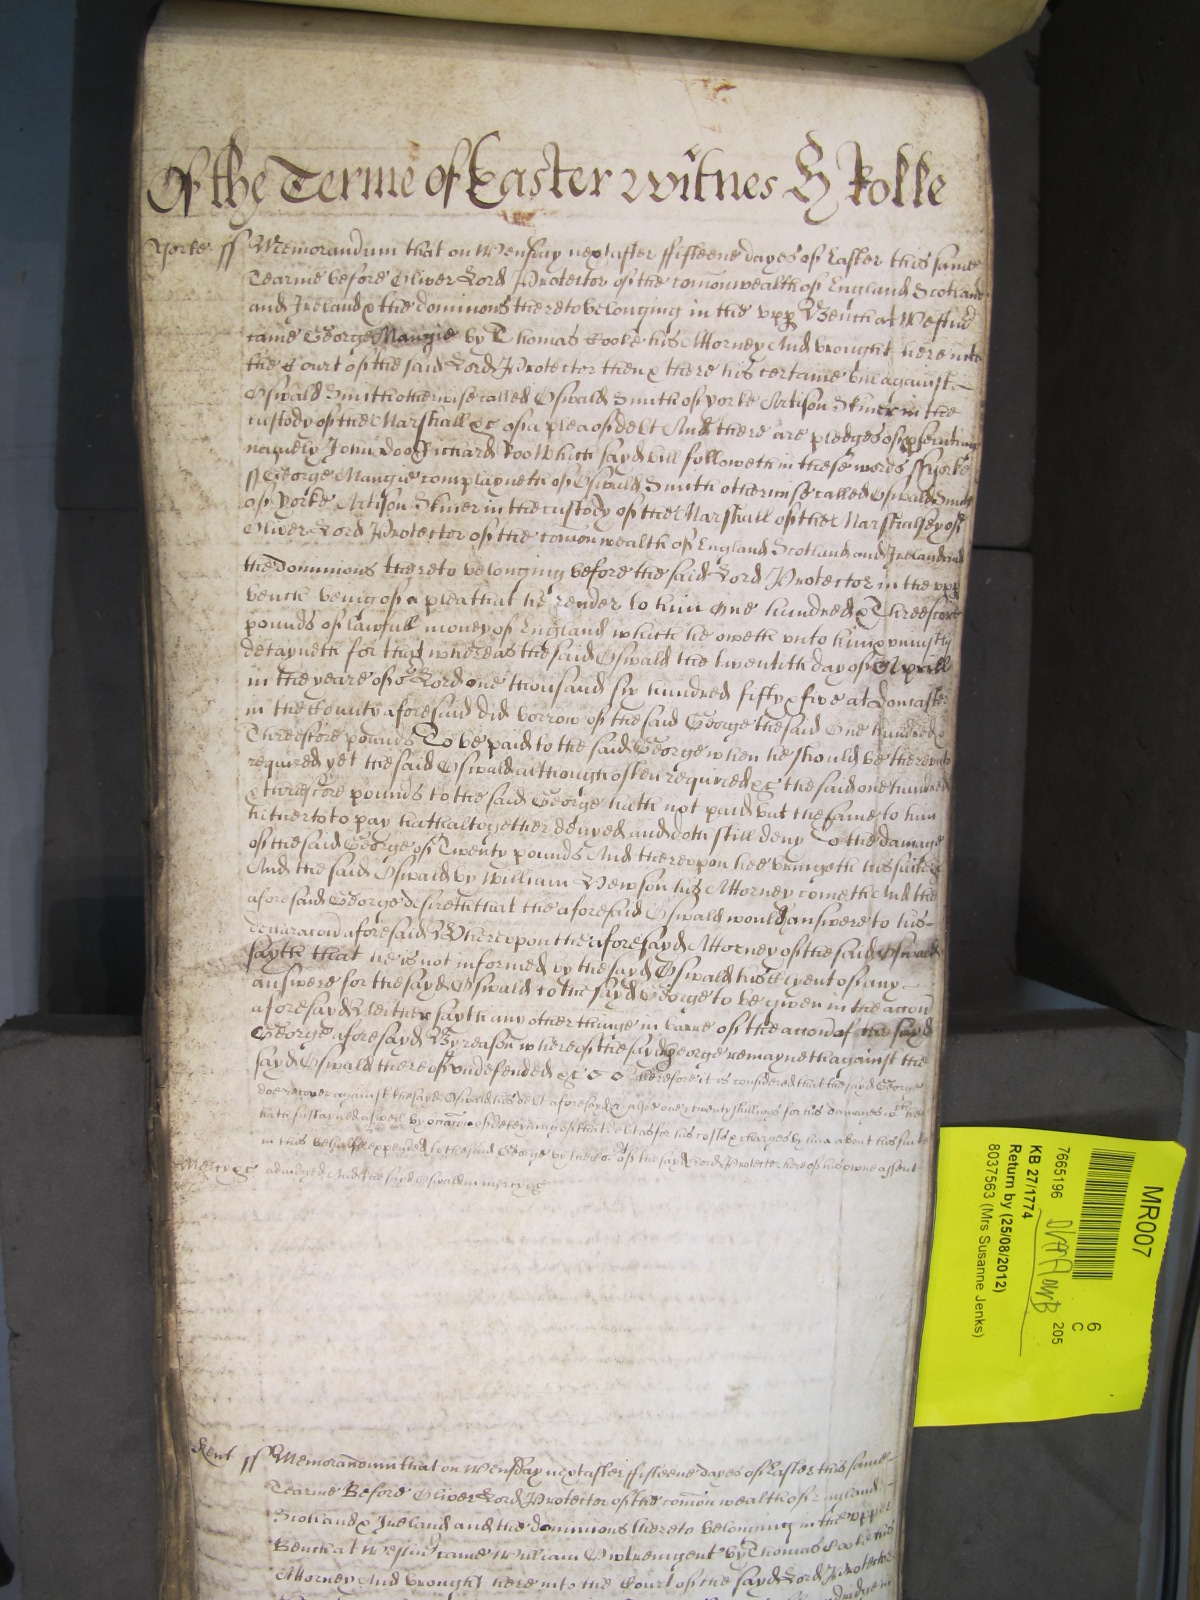 Of the Terme of Easter witnes H Rolle
Yorke ss Memorandum that on Wensday next after fifteene dayes of Easter this same
Tearme before Oliver Lord Protector of the comonwealth of England Scotland
and Ireland & the dominions thereto belonging in the upp Bench at Westm
came George Mangie by Thomas Coole his Attorney And brought here into
the Court of the said Lord Protector then & there his certaine bill against
Oswald Smith otherwise called Oswald Smith of Yorke Artison Skiner in the
custody of the Marshall &c of a plea of debt And there are pledges of prosecution
namely John Doo & Richard Roo Which sayd bill followeth in these words ss Yorke
ss George Mangie complayneth of Oswald Smith otherwise called Oswald Smith
of Yorke Artison Skiner in the custody of the Marshall of the Marshalsey of
Oliver Lord Protector of the comonwealth of England Scotland and Ireland and
the Dominions thereto belonging before the said Lord Protector in the upp
bench being of a plea that he render to him One hundred & Threescore
pounds of lawfull money of England which he oweth unto him & uniustly
detayneth for that whereas the said Oswald the twentith day of Aprill
in the yeare of o Lord one thousand six hundred fifty & five at Doncaster
in the County aforesaid did borrow of the said George the said One hundred &
Threescore pounds To be paid to the said George when he should be thereunto
required yet the said Oswald although often required &c the said one hundred
& threescore pounds to the said George hath not paid but the same to him
hitherto to pay hath altogether denyed and doth still deny To the damage
of the said George of Twenty pounds And thereupon hee bringeth his suite &c
And the said Oswald by William Newson his Attorney cometh And the
aforesaid George desireth that the aforesaid Oswald would answere to his
declaracon aforesaid Whereupon the aforesayd Attorney of the said Oswald
sayth that he is not informed by the sayd Oswald his Clyent of any
answere for the sayd Oswald to the sayd George to be given in the accon
aforesayd Neither sayth any other thinge in barre of the accon of the sayd
George aforesayd By reason whereof the sayd George remayneth against the
sayd Oswald thereof undefended &c Therefore it is considered that the sayd George
doe recover against the sayd Oswald his debt aforesayd & alsoe one & twenty shillings for his damages wch hee
hath sustayned aswell by occacon of deteyning of that debt as for his costs & charges by him about his suite
in this behalfe expended to the said George by the Cor of the sayd Lord Protector here of his owne assent
Mercy &c adiudged And the said Oswald in mercy &c
Kent ss Memorandum that on Wensday next after fifteene dayes of Easter this same
Tearme Before Oliver Lord Protector of the comon wealth of England
Scotland & Ireland and the dominions thereto belonging in the upper
Bench at Westm came William by Thomas his
Attorney And brought here into the Court of the sayd Lord Protector
MR007
6
C
205
7665196
KB 27/1774
Return by (25/08/2012)
8037563 (Mrs Susanne Jenks)